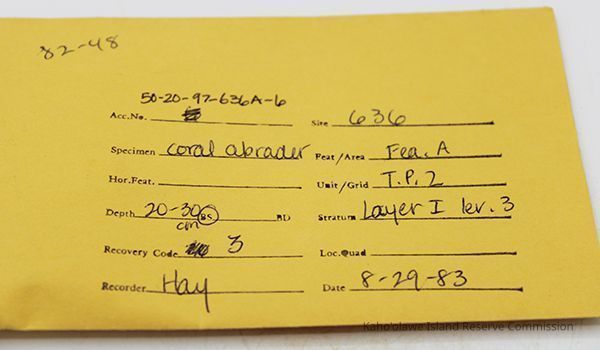 82-48
50-20-97-636A-6
Acc.No. Site 636
Specimen coral abrader Feat/Area Fea. A
Hor.Feat. Unit/Grid T.P. 2
Depth 20-30 BS BD Stratum Layer I lev. 3
cm
Recovery Code 3 Loc.Quad
Recorder Hay Date 8-29-83
Kaho'olawe Island Reserve Commission